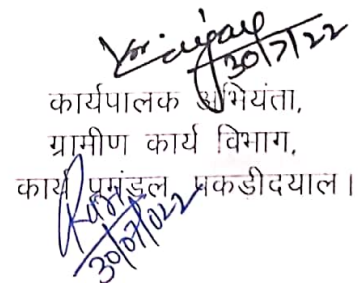 30/7/22
कार्यपालक अभियंता,
ग्रामीण कार्य विभाग,
कार्य प्रमंडल, पकड़ीदयाल।
30/07/022